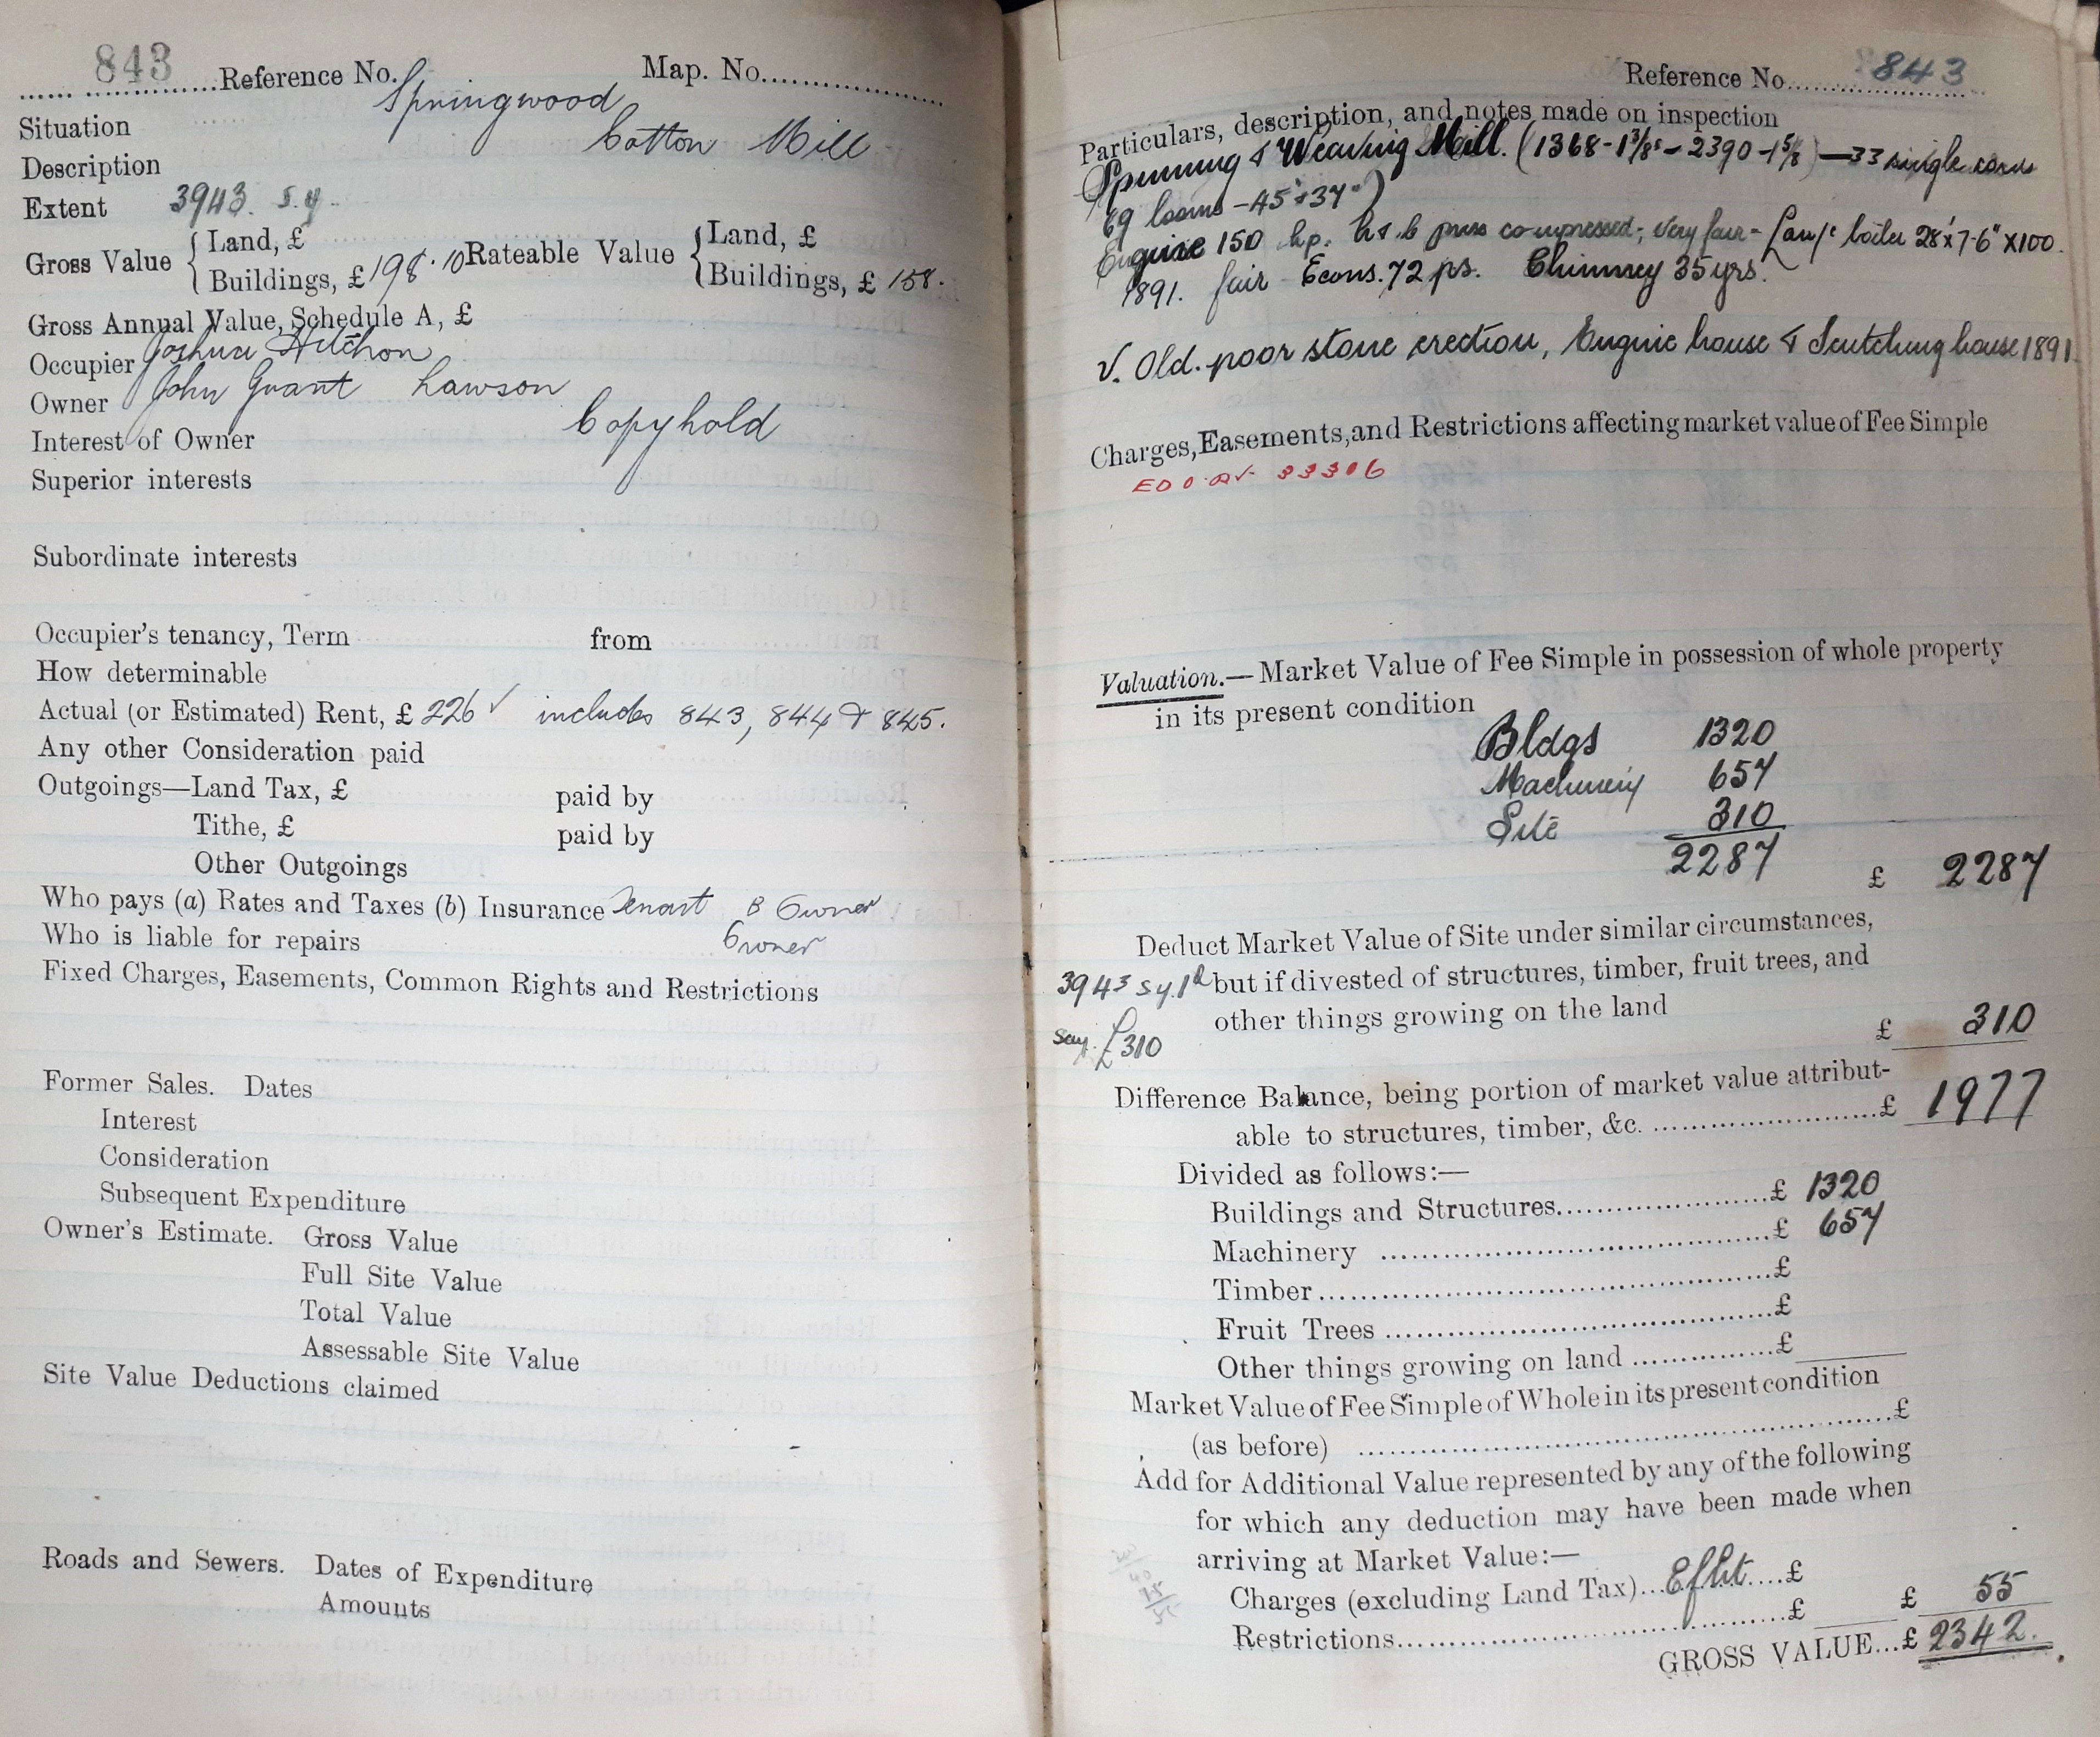 843 Reference No. Map. No.
Springwood
Situation
Cotton Mill
Description
Extent 3943. s.y.
Gross Value { Land, £
Buildings, £ 198.10 Rateable Value { Land, £
Buildings, £ 158.
Gross Annual Value, Schedule A, £
Occupier Joshua Hitchon
Owner John Grant Lawson
Interest of Owner Copyhold
Superior interests
Subordinate interests
Occupier's tenancy, Term from
How determinable
Actual (or Estimated) Rent, £ 226 ✓ includes 843, 844 & 845.
Any other Consideration paid
Outgoings—Land Tax, £ paid by
Tithe, £ paid by
Other Outgoings
Who pays (a) Rates and Taxes (b) Insurance Tenant B Owner
Who is liable for repairs Owner
Fixed Charges, Easements, Common Rights and Restrictions
Former Sales. Dates
Interest
Consideration
Subsequent Expenditure
Owner's Estimate. Gross Value
Full Site Value
Total Value
Assessable Site Value
Site Value Deductions claimed
Roads and Sewers. Dates of Expenditure
Amounts
Reference No. 843
Particulars, description, and notes made on inspection
Spinning & Weaving Mill. (1368-1⅜s - 2390-1⅝) — 33 single cards
69 looms - 45" & 37")
Engine 150 hp. h & b press compressed; very fair - Lan/c boiler 28'x7-6" x100.
1891. fair Econs. 72 ps. Chimney 35 yrs.
v. Old. poor stone erection, Engine house & Scutching house 1891.
Charges, Easements, and Restrictions affecting market value of Fee Simple
33306
Valuation.—Market Value of Fee Simple in possession of whole property
in its present condition
Bldgs 1320
Machinery 657
Site 310
2287
£ 2287
Deduct Market Value of Site under similar circumstances,
3943 sy. 1d but if divested of structures, timber, fruit trees, and
other things growing on the land
say £310 £ 310
Difference Balance, being portion of market value attribut-
able to structures, timber, &c. £ 1977
Divided as follows:—
Buildings and Structures £ 1320
Machinery £ 657
Timber £
Fruit Trees £
Other things growing on land £
Market Value of Fee Simple of Whole in its present condition
(as before) £
Add for Additional Value represented by any of the following
for which any deduction may have been made when
arriving at Market Value:—
Charges (excluding Land Tax) £
Restrictions £ £ 55
GROSS VALUE...£ 2342.